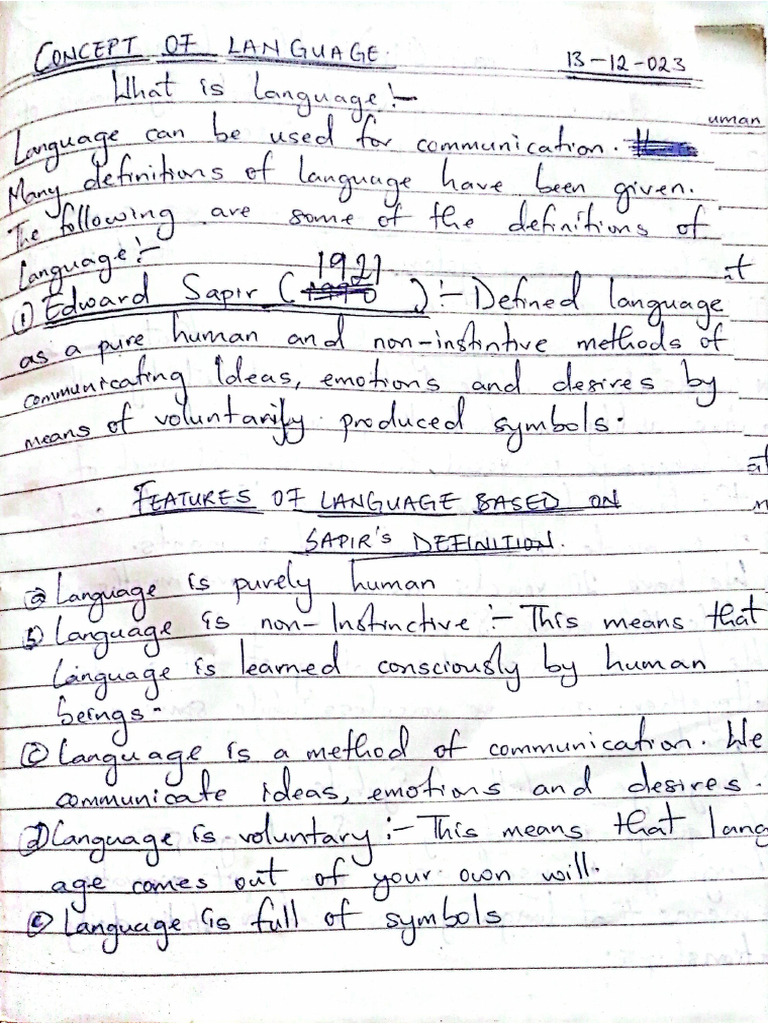 CONCEPT OF LANGUAGE.
13-12-023
What is language:-
Language can be used for communication.
uman
Many definitions of language have been given.
The following are some of the definitions of
language:-
at
1921
① Edward Sapir ( 1990 ) :- Defined language
as a pure human and non-instintive methods of
communicating Ideas, emotions and desires by
means of voluntarify produced symbols.
at
FEATURES OF LANGUAGE BASED ON
SAPIR'S DEFINITION.
ⓐ Language is purely human
ⓑ Language is non-Instinctive :- This means that
Language is learned consciously by human
beings-
ⓒ Language is a method of communication. We
communicate ideas, emotions and desires.
ⓓ Language is voluntary :- This means that lang
age comes out of your own will.
ⓔ Language is full of symbols